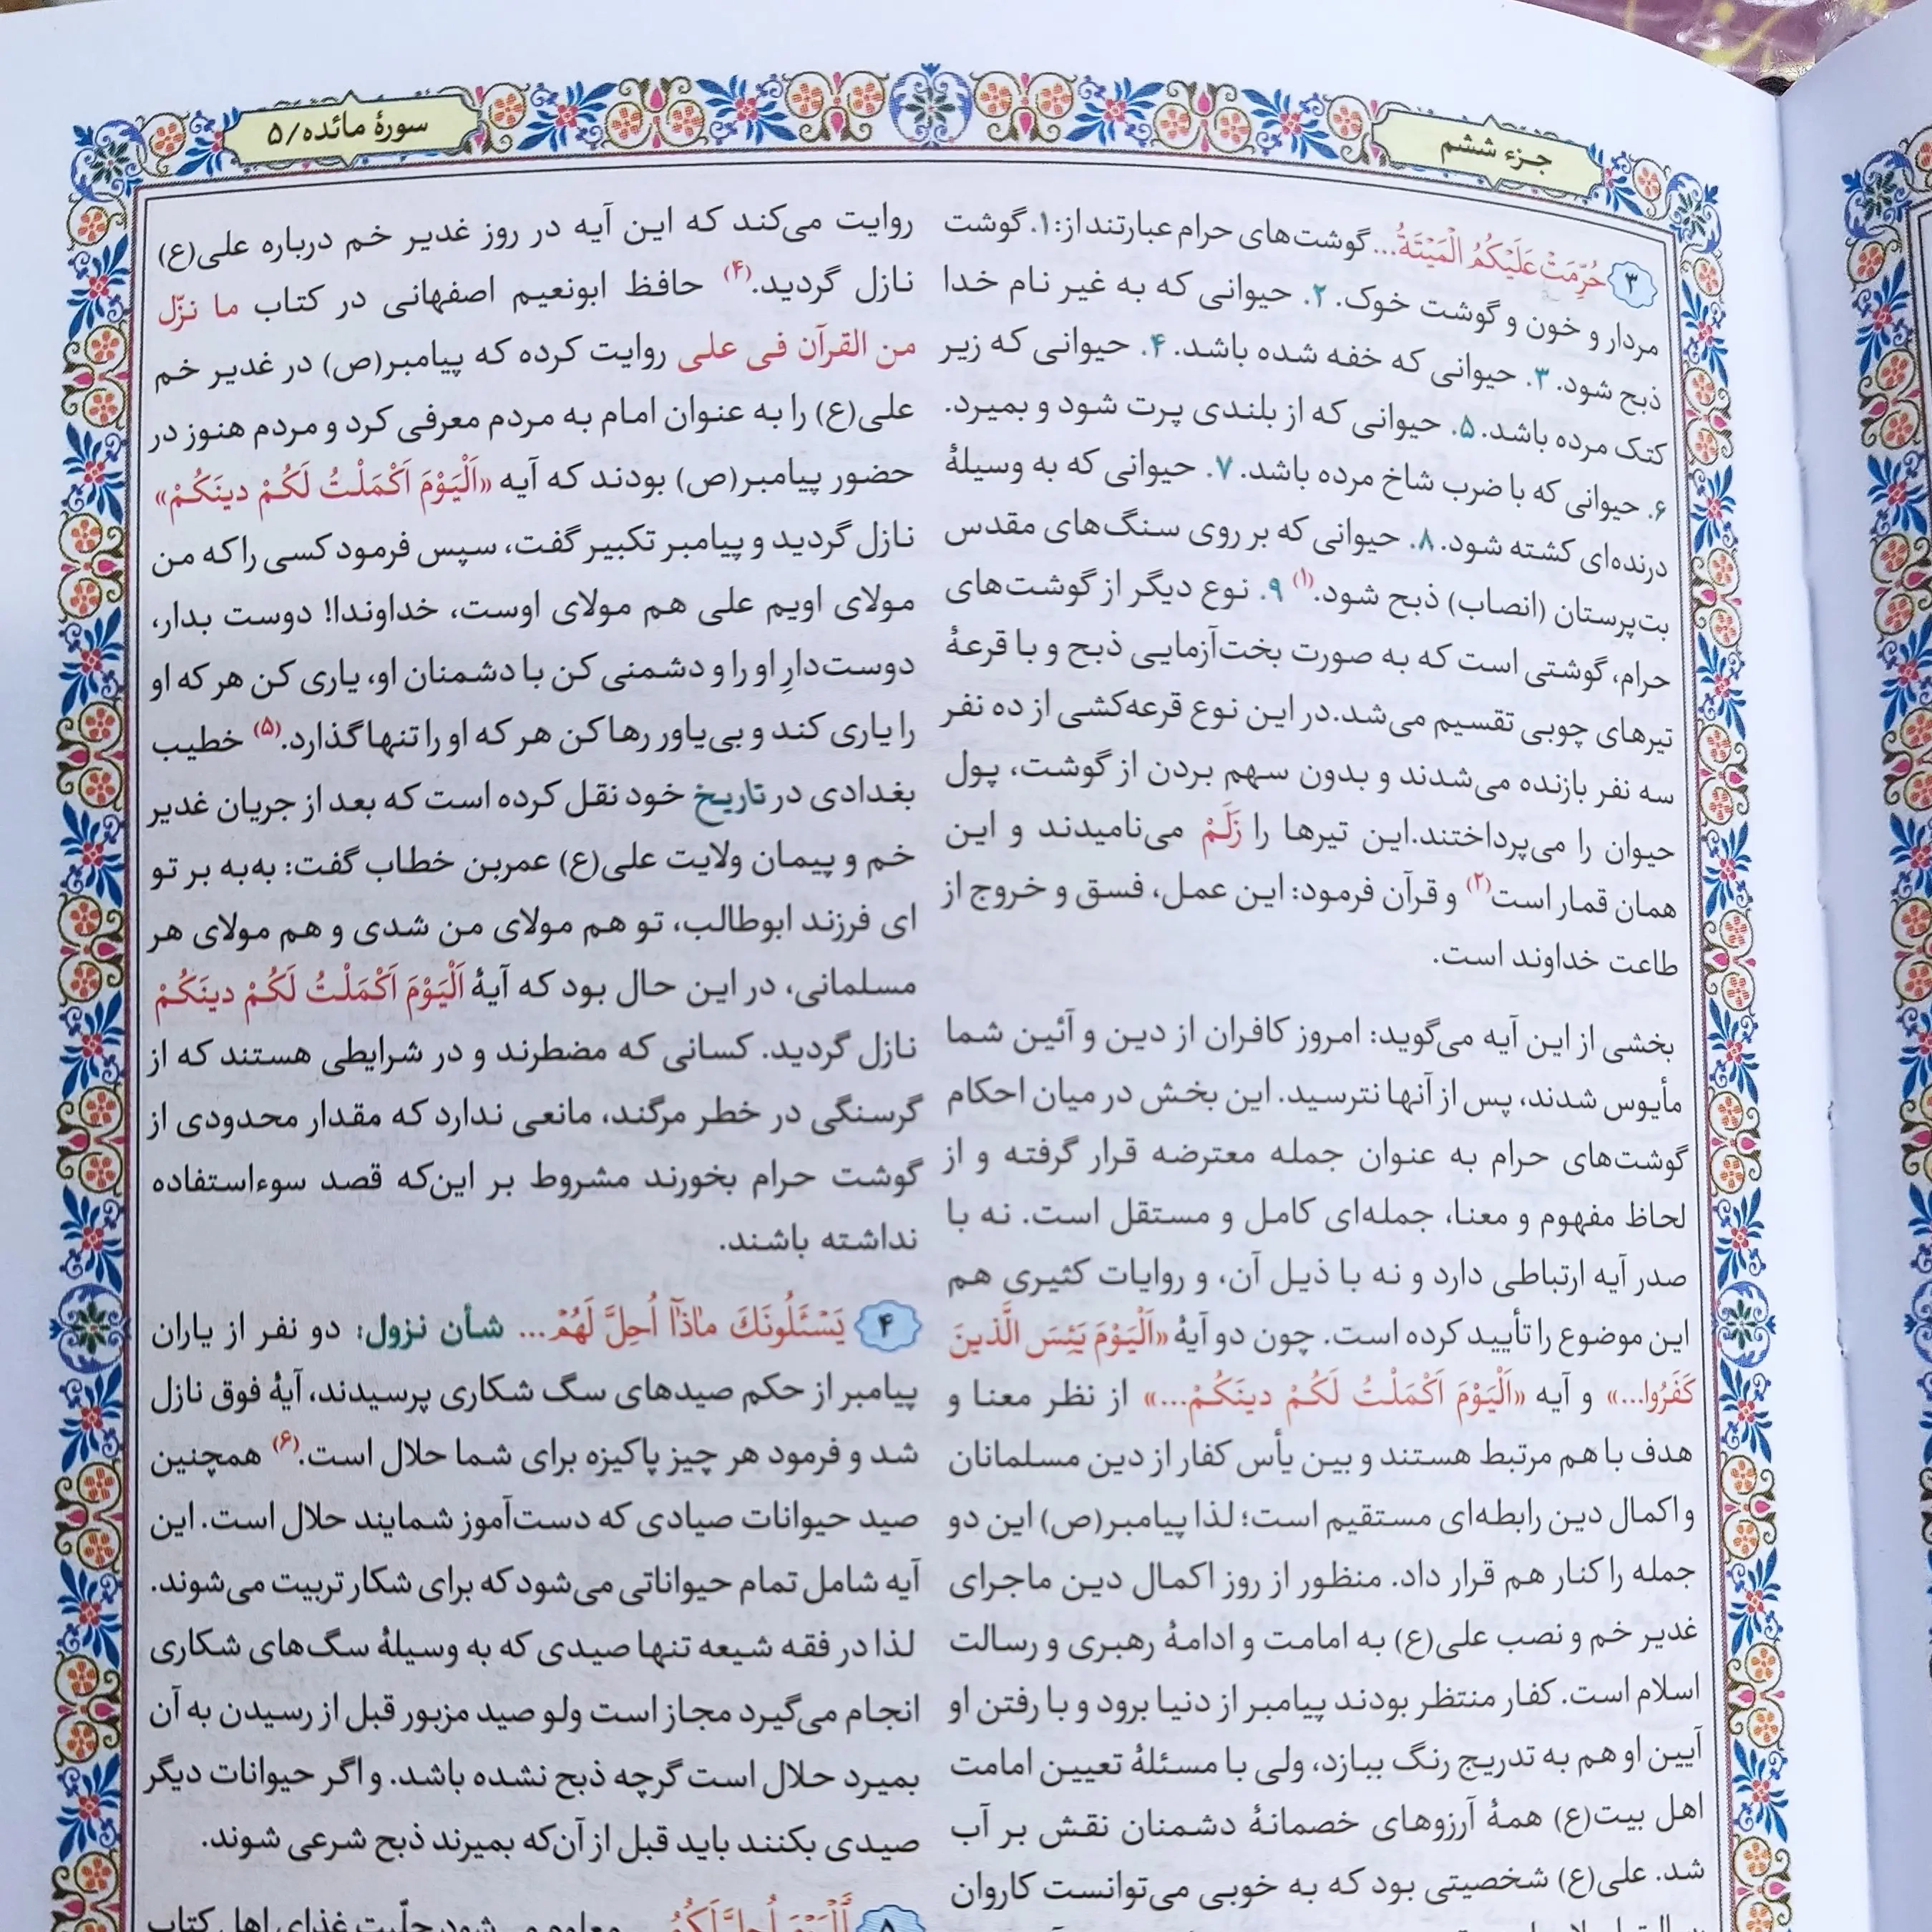 جزء ششم
سورهٔ مائده/۵
۳ حُرِّمَتْ عَلَيْكُمُ الْمَيْتَةُ... گوشت‌های حرام عبارتند از: ۱. گوشت
مردار و خون و گوشت خوک. ۲. حیوانی که به غیر نام خدا
ذبح شود. ۳. حیوانی که خفه شده باشد. ۴. حیوانی که زیر
کتک مرده باشد. ۵. حیوانی که از بلندی پرت شود و بمیرد.
۶. حیوانی که با ضرب شاخ مرده باشد. ۷. حیوانی که به وسیلهٔ
درنده‌ای کشته شود. ۸. حیوانی که بر روی سنگ‌های مقدس
بت‌پرستان (انصاب) ذبح شود.(۱) ۹. نوع دیگر از گوشت‌های
حرام، گوشتی است که به صورت بخت‌آزمایی ذبح و با قرعهٔ
تیرهای چوبی تقسیم می‌شد. در این نوع قرعه‌کشی از ده نفر
سه نفر بازنده می‌شدند و بدون سهم بردن از گوشت، پول
حیوان را می‌پرداختند. این تیرها را زَلَمْ می‌نامیدند و این
همان قمار است(۲) و قرآن فرمود: این عمل، فسق و خروج از
طاعت خداوند است.
بخشی از این آیه می‌گوید: امروز کافران از دین و آئین شما
مأیوس شدند، پس از آنها نترسید. این بخش در میان احکام
گوشت‌های حرام به عنوان جمله معترضه قرار گرفته و از
لحاظ مفهوم و معنا، جمله‌ای کامل و مستقل است. نه با
صدر آیه ارتباطی دارد و نه با ذیل آن، و روایات کثیری هم
این موضوع را تأیید کرده است. چون دو آیهٔ «اَلْيَوْمَ يَئِسَ الَّذينَ
كَفَرُوا...» و آیه «اَلْيَوْمَ اَكْمَلْتُ لَكُمْ دينَكُمْ...» از نظر معنا و
هدف با هم مرتبط هستند و بین یأس کفار از دین مسلمانان
و اکمال دین رابطه‌ای مستقیم است؛ لذا پیامبر(ص) این دو
جمله را کنار هم قرار داد. منظور از روز اکمال دین ماجرای
غدیر خم و نصب علی(ع) به امامت و ادامهٔ رهبری و رسالت
اسلام است. کفار منتظر بودند پیامبر از دنیا برود و با رفتن او
آیین او هم به تدریج رنگ ببازد، ولی با مسئلهٔ تعیین امامت
اهل بیت(ع) همهٔ آرزوهای خصمانهٔ دشمنان نقش بر آب
شد. علی(ع) شخصیتی بود که به خوبی می‌توانست کاروان
روایت می‌کند که این آیه در روز غدیر خم درباره علی(ع)
نازل گردید.(۴) حافظ ابونعیم اصفهانی در کتاب ما نزّل
من القرآن فی علی روایت کرده که پیامبر(ص) در غدیر خم
علی(ع) را به عنوان امام به مردم معرفی کرد و مردم هنوز در
حضور پیامبر(ص) بودند که آیه «اَلْيَوْمَ اَكْمَلْتُ لَكُمْ دينَكُمْ»
نازل گردید و پیامبر تکبیر گفت، سپس فرمود کسی را که من
مولای اویم علی هم مولای اوست، خداوندا! دوست بدار،
دوست‌دارِ او را و دشمنی کن با دشمنان او، یاری کن هر که او
را یاری کند و بی‌یاور رها کن هر که او را تنها گذارد.(۵) خطیب
بغدادی در تاریخ خود نقل کرده است که بعد از جریان غدیر
خم و پیمان ولایت علی(ع) عمربن خطاب گفت: به‌به بر تو
ای فرزند ابوطالب، تو هم مولای من شدی و هم مولای هر
مسلمانی، در این حال بود که آیهٔ اَلْيَوْمَ اَكْمَلْتُ لَكُمْ دينَكُمْ
نازل گردید. کسانی که مضطرند و در شرایطی هستند که از
گرسنگی در خطر مرگند، مانعی ندارد که مقدار محدودی از
گوشت حرام بخورند مشروط بر این‌که قصد سوءاستفاده
نداشته باشند.
۴ يَسْئَلُونَكَ ماذا اُحِلَّ لَهُمْ... شأن نزول: دو نفر از یاران
پیامبر از حکم صیدهای سگ شکاری پرسیدند، آیهٔ فوق نازل
شد و فرمود هر چیز پاکیزه برای شما حلال است.(۶) همچنین
صید حیوانات صیادی که دست‌آموز شمایند حلال است. این
آیه شامل تمام حیواناتی می‌شود که برای شکار تربیت می‌شوند.
لذا در فقه شیعه تنها صیدی که به وسیلهٔ سگ‌های شکاری
انجام می‌گیرد مجاز است ولو صید مزبور قبل از رسیدن به آن
بمیرد حلال است گرچه ذبح نشده باشد. و اگر حیوانات دیگر
صیدی بکنند باید قبل از آن‌که بمیرند ذبح شرعی شوند.
۵ اَلْيَوْمَ اُحِلَّ لَكُمُ